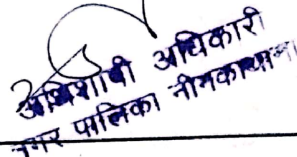 अधिशाषी अधिकारी
नगर पालिका नीमकाथाना